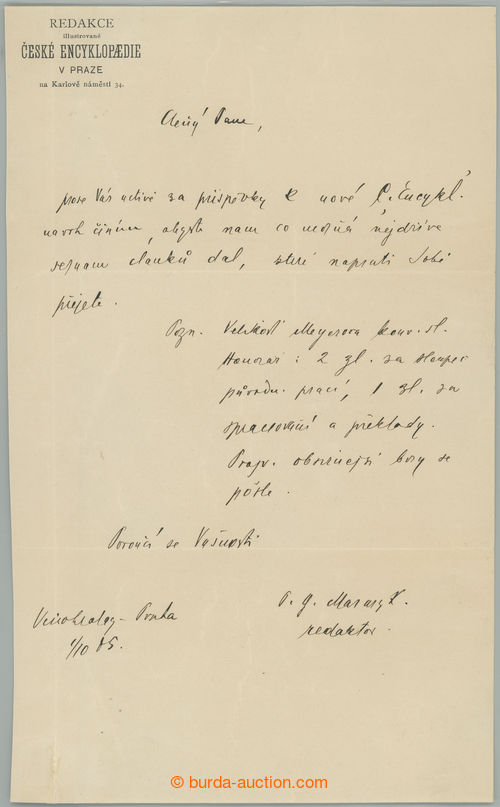 REDAKCE
illustrované
ČESKÉ ENCYKLOPÆDIE
V PRAZE
na Karlově náměstí 34.
Ctěný Pane,
prose Vás uctivě za příspěvky k nové "Č. Encykl."
navrh činím, abyste nam co možná nejdříve
seznam článků dal, které napsati Sobě
přejete.
Pozn. Velikost Meyerova konv. sl.
Honorar: 2 zl. za sloupec
původn. prací, 1 zl. za
zpracování a překlady.
obsirnejsi brzy se
pošle.
Poroučí se Vašnosti
T. G. Masaryk.
redaktor.
Vinohrady - Praha
1/10 85.
© burda-auction.com